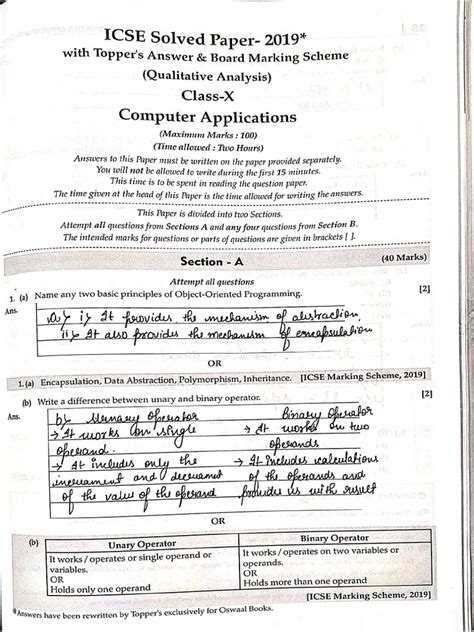 ICSE Solved Paper- 2019*
with Topper's Answer & Board Marking Scheme
(Qualitative Analysis)
Class-X
Computer Applications
(Maximum Marks : 100)
(Time allowed : Two Hours)
Answers to this Paper must be written on the paper provided separately.
You will not be allowed to write during the first 15 minutes.
This time is to be spent in reading the question paper.
The time given at the head of this Paper is the time allowed for writing the answers.
This Paper is divided into two Sections.
Attempt all questions from Sections A and any four questions from Section B.
The intended marks for questions or parts of questions are given in brackets [ ].
Section - A (40 Marks)
Attempt all questions
1. (a) Name any two basic principles of Object-Oriented Programming. [2]
Ans. a) i) It provides the mechanism of abstraction
ii) It also provides the mechanism of encapsulation
OR
1. (a) Encapsulation, Data Abstraction, Polymorphism, Inheritance. [ICSE Marking Scheme, 2019]
(b) Write a difference between unary and binary operator. [2]
Ans. b) Unary Operator Binary Operator
→ It works on single → It works on two
operand. operands
→ It includes only the → It Includes calculations
increament and decreament of the operands and
of the value of the operand provides us with result
OR
(b) Unary Operator Binary Operator
It works / operates or single operand or It works / operates on two variables or
variables. operands.
OR OR
Holds only one operand Holds more than one operand
[ICSE Marking Scheme, 2019]
*Answers have been rewritten by Topper's exclusively for Oswaal Books.